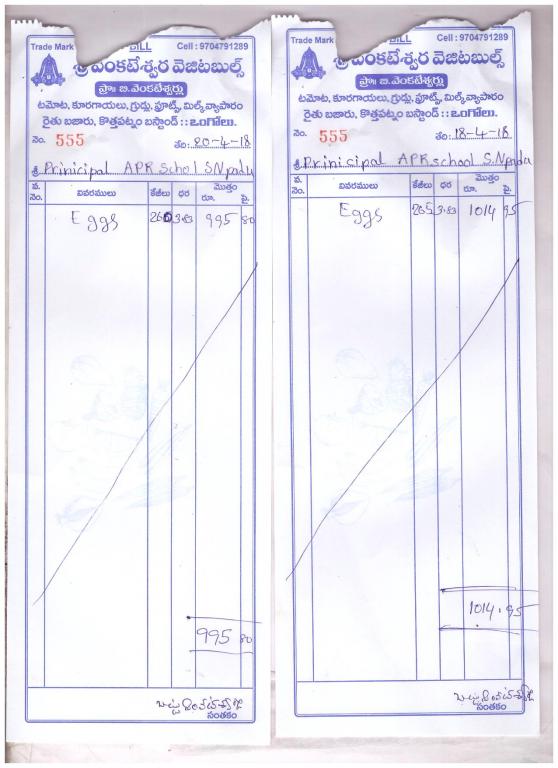 BILL
Trade Mark
Cell : 9704791289
శ్రీ వెంకటేశ్వర వెజిటబుల్స్
ప్రొః బి.వెంకటేశ్వర్లు
టమోట, కూరగాయలు, గ్రుడ్లు, ఫ్రూట్స్, మిల్క్ వ్యాపారం
రైతు బజారు, కొత్తపట్నం బస్టాండ్ : : ఒంగోలు.
నెం. 555 తేది: 20-4-18
శ్రీ Prinicipal APR Schol S.N padu
వ. నెం. వివరములు కేజీలు ధర మొత్తం రూ. పై.
Eggs 260 3.83 995 80
995 80
సంతకం
BILL
Trade Mark
Cell : 9704791289
శ్రీ వెంకటేశ్వర వెజిటబుల్స్
ప్రొః బి.వెంకటేశ్వర్లు
టమోట, కూరగాయలు, గ్రుడ్లు, ఫ్రూట్స్, మిల్క్ వ్యాపారం
రైతు బజారు, కొత్తపట్నం బస్టాండ్ : : ఒంగోలు.
నెం. 555 తేది: 18-4-18
శ్రీ Prinicipal APR school S.N padu
వ. నెం. వివరములు కేజీలు ధర మొత్తం రూ. పై.
Eggs 265 3.83 1014 95
1014.95
సంతకం